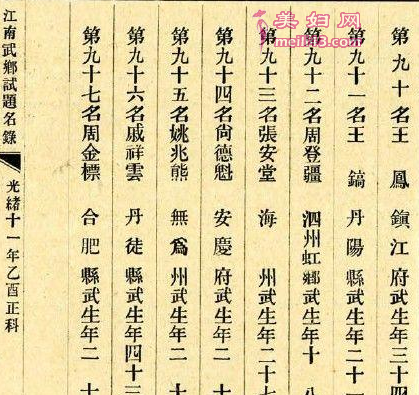 第九十名王　鳳　鎮江府武生年三十四
第九十一名王　鎬　丹陽縣武生年二十一
第九十二名周登疆　泗州虹鄉武生年十八
第九十三名張安堂　海　州武生年二十七
第九十四名尙德魁　安慶府武生年二十
第九十五名姚兆熊　無爲州武生年二十
第九十六名戚祥雲　丹徒縣武生年四十三
第九十七名周金標　合肥縣武生年二十
江南武鄉試題名錄　光緒十一年乙酉正科
美妇网
meifu3.com